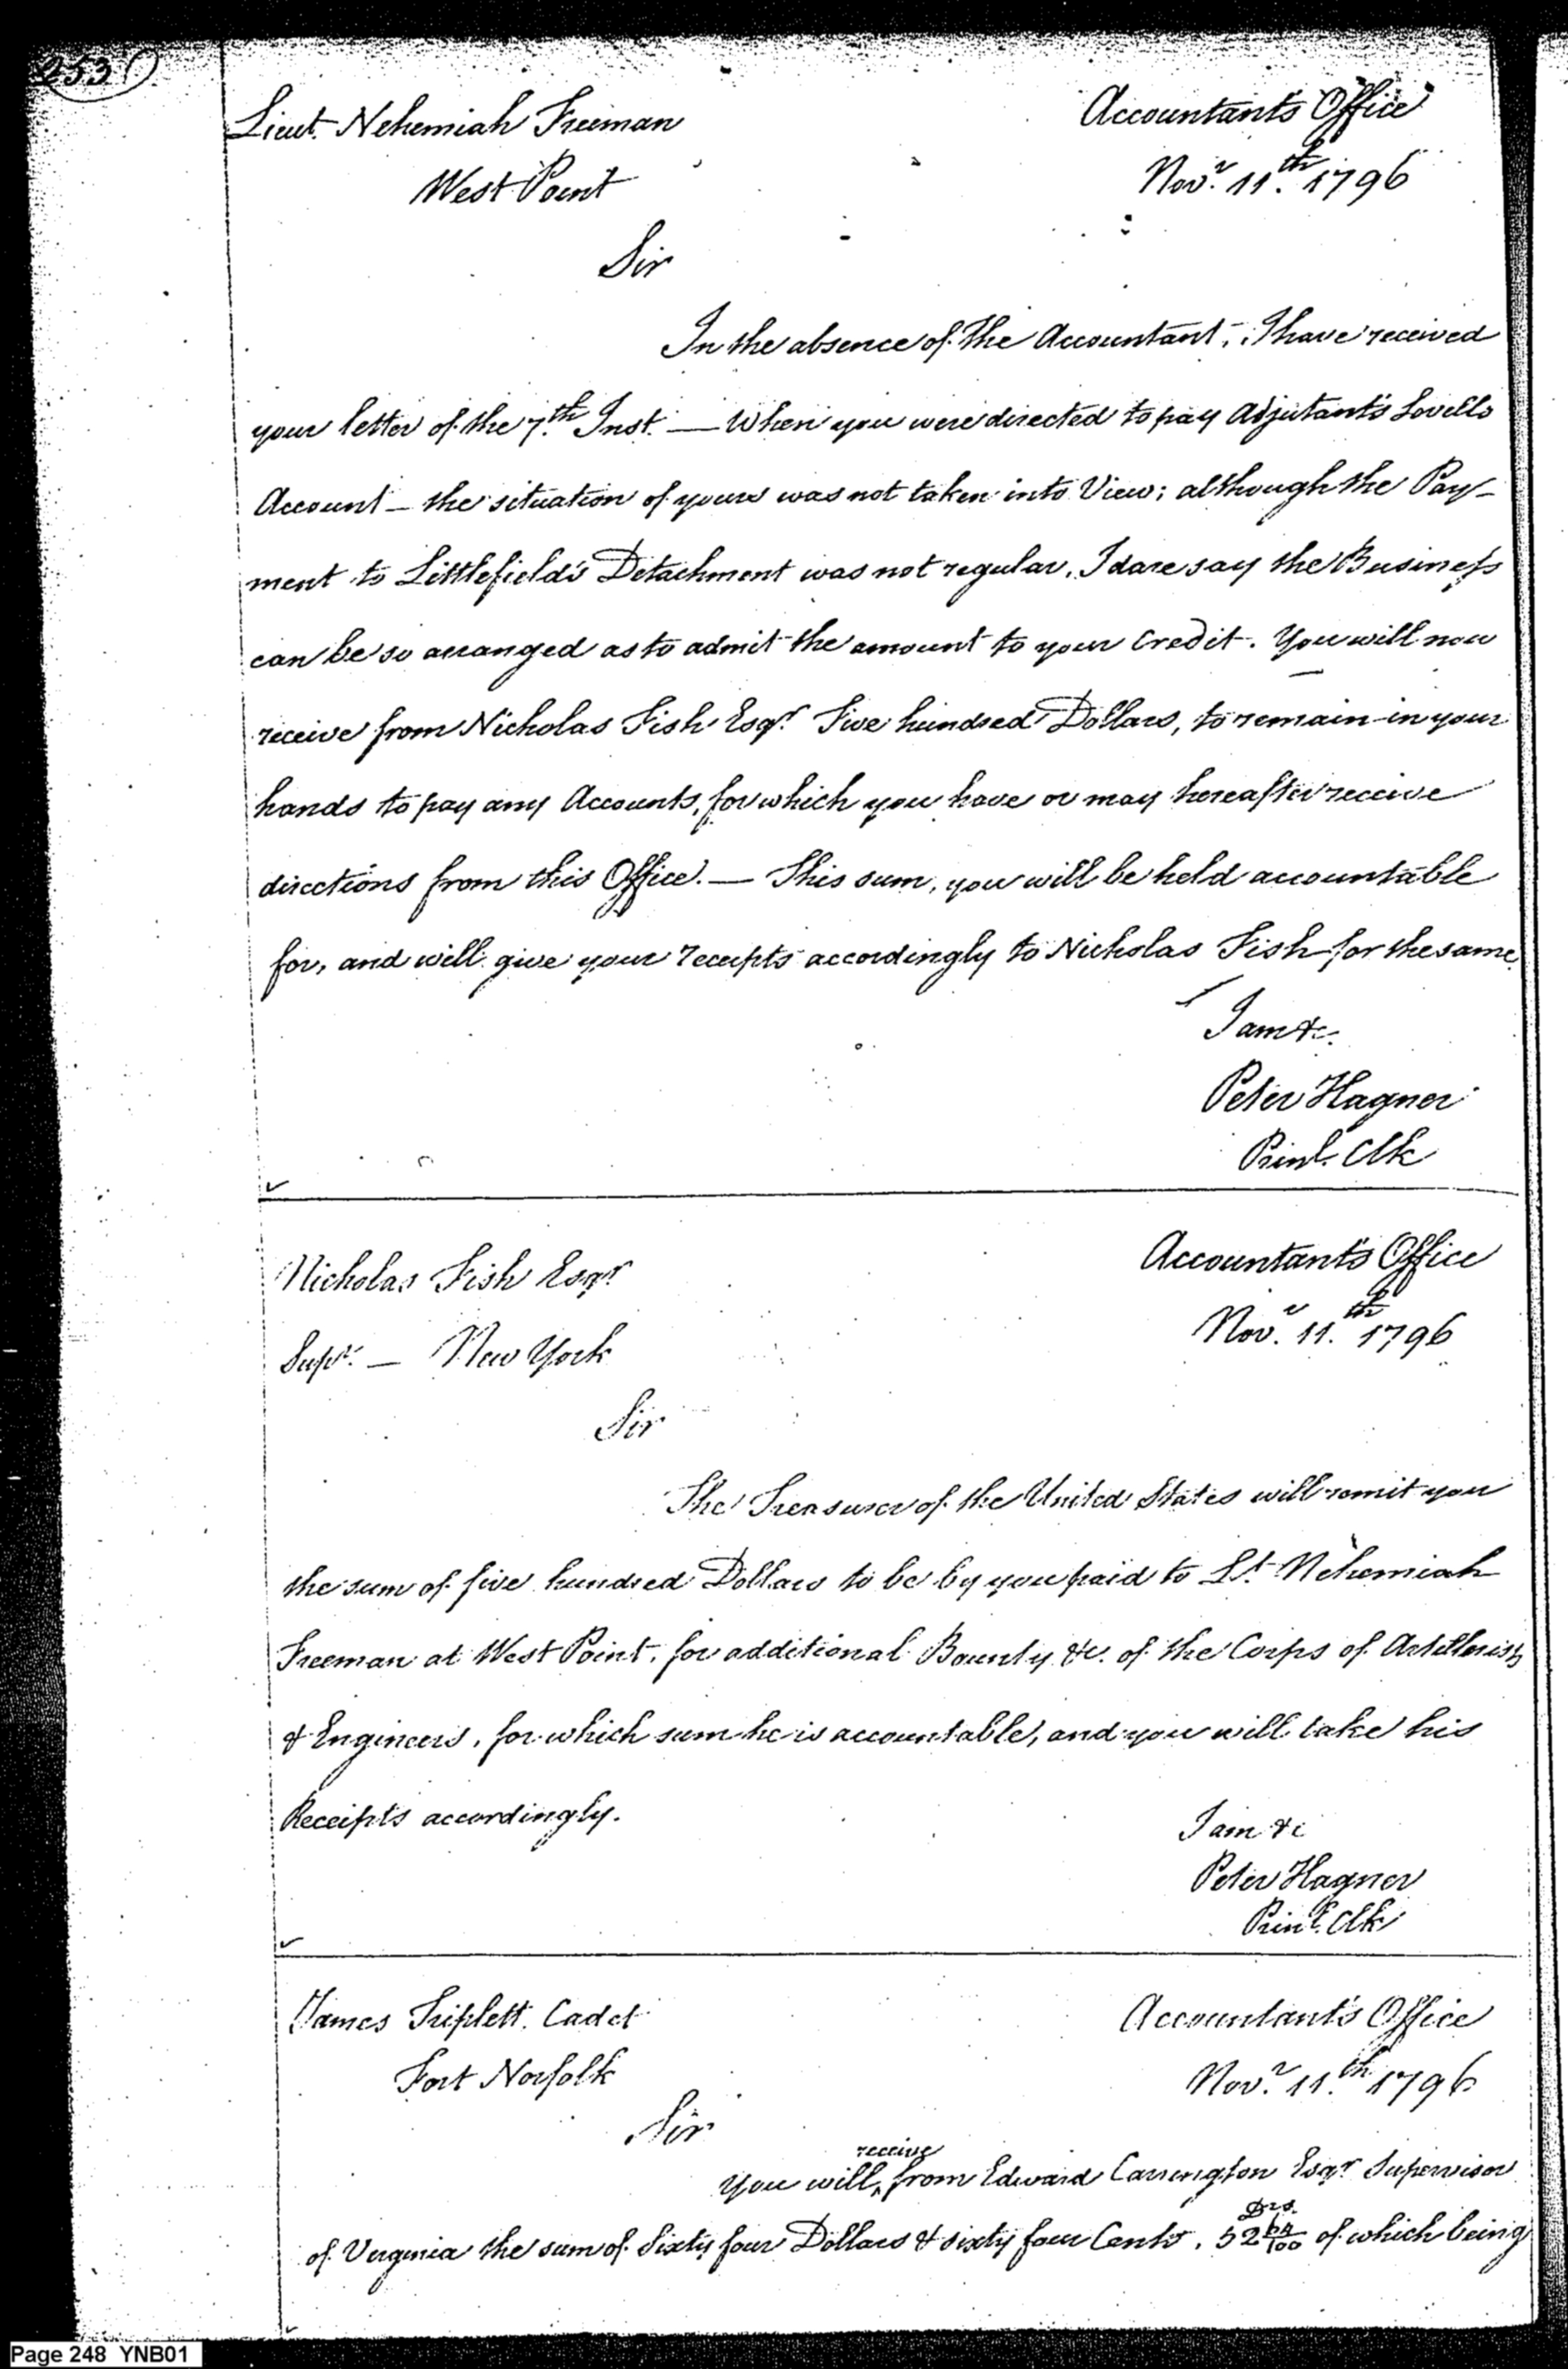 253
Lieut. Nehemiah Freeman
Accountant's Office
West Point
Novr. 11th. 1796
Sir
In the absence of the Accountant, I have received
your letter of the 7th. Inst. — When you were directed to pay Adjutant's Lovells
Account — the situation of yours was not taken into View; although the Pay-
ment to Littlefield's Detachment was not regular, I dare say the Business
can be so arranged as to admit the amount to your Credit. You will now
receive from Nicholas Fish Esqr. Five hundred Dollars, to remain in your
hands to pay any Accounts, for which you have or may hereafter receive
directions from this Office. — This sum, you will be held accountable
for, and will give your receipts accordingly to Nicholas Fish for the same.
I am &c.
Peter Hagner
Prinl. Clk
Nicholas Fish Esqr
Accountant's Office
Supr. — New York
Novr. 11th. 1796
Sir
The Treasurer of the United States will remit you
the sum of five hundred Dollars to be by you paid to Lt. Nehemiah
Freeman at West Point, for additional Bounty &c. of the Corps of Artillerists
& Engineers, for which sum he is accountable, and you will take his
Receipts accordingly.
I am &c
Peter Hagner
Prinl. Clk
James Triplett. Cadet
Accountant's Office
Fort Norfolk
Novr. 11th. 1796
Sir
You will receive from Edward Carrington Esqr Supervisor
of Virginia the sum of Sixty four Dollars & sixty four Cents. 52 64/100 Drs. of which being
Page 248 YNB01